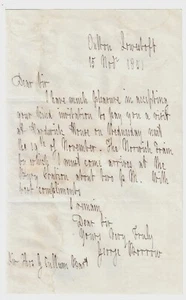 Oulton Lowestoft
15 Novr 1881
Dear Sir
I have much pleasure in accepting
your kind invitation to pay you a visit
at Hardwick House on Wednesday next
the 16th of November. The Norwich train
by which I must come arrives at the
about two P. M. With
best compliments
I remain
Dear Sir
Yours Very Truly
George Borrow
Sir Thos G Cullum Bart